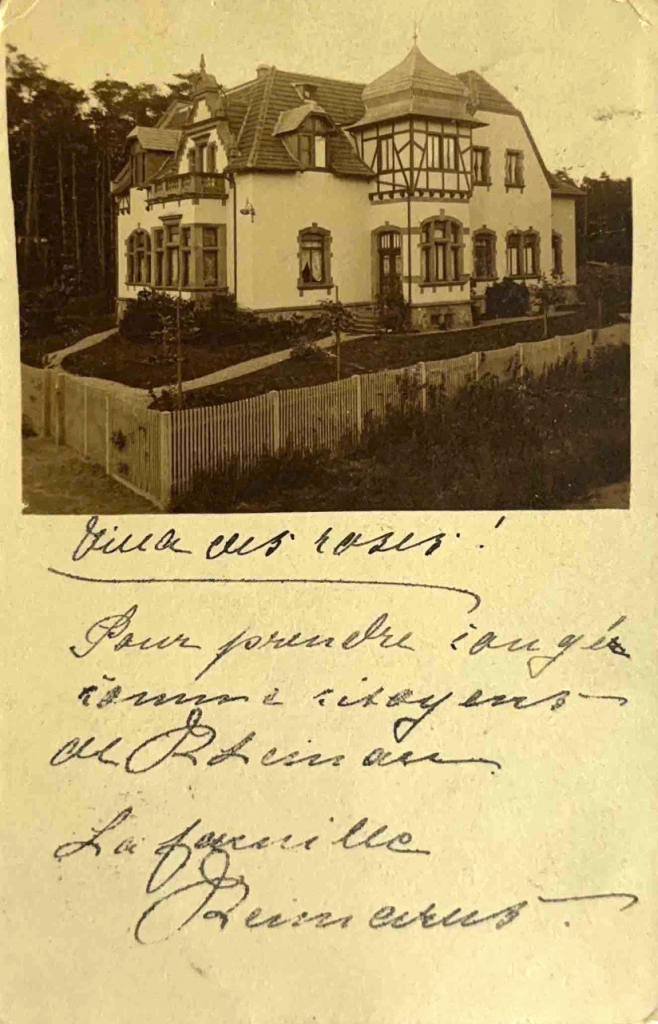 Villa des roses!
Pour prendre congé
comme citoyens
de Rheinau
La famille
Reimarus.